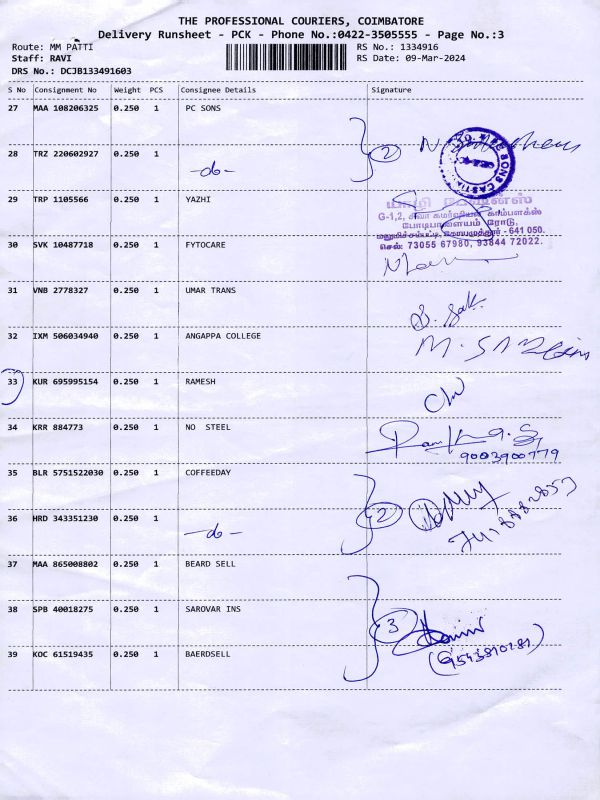 THE PROFESSIONAL COURIERS, COIMBATORE
Delivery Runsheet - PCK - Phone No.:0422-3505555 - Page No.:3
Route: MM PATTI RS No.: 1334916
Staff: RAVI RS Date: 09-Mar-2024
DRS No.: DCJB133491603
S No Consignment No Weight PCS Consignee Details Signature
27 MAA 108206325 0.250 1 PC SONS
2
28 TRZ 220602927 0.250 1 -do-
29 TRP 1105566 0.250 1 YAZHI
G-1,2, சிவா கமர்ஷியல் காம்பளக்ஸ்
போடிபாளையம் ரோடு,
மலுமிச்சம்பட்டி, கோயமுத்தூர் - 641 050.
செல்: 73055 67980, 93844 72022.
30 SVK 10487718 0.250 1 FYTOCARE
31 VNB 2778327 0.250 1 UMAR TRANS
32 IXM 506034940 0.250 1 ANGAPPA COLLEGE
33 KUR 695995154 0.250 1 RAMESH
34 KRR 884773 0.250 1 NO STEEL
9003900779
35 BLR 5751522030 0.250 1 COFFEEDAY
2
36 HRD 343351230 0.250 1 -do-
37 MAA 865008802 0.250 1 BEARD SELL
38 SPB 40018275 0.250 1 SAROVAR INS
3
39 KOC 61519435 0.250 1 BAERDSELL